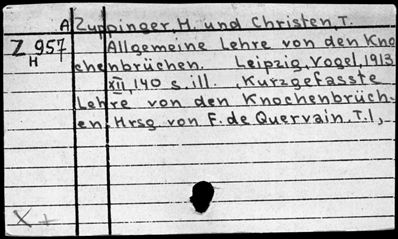 A Zuppinger, H. und Christen, T.
Z 957 Allgemeine Lehre von den Kno
H chenbrüchen. Leipzig, Vogel, 1913
XII, 140 s. ill. (Kurzgefasste
Lehre von den Knochenbrüch-
en. Hrsg. von F. de Quervain. T. 1,
X +